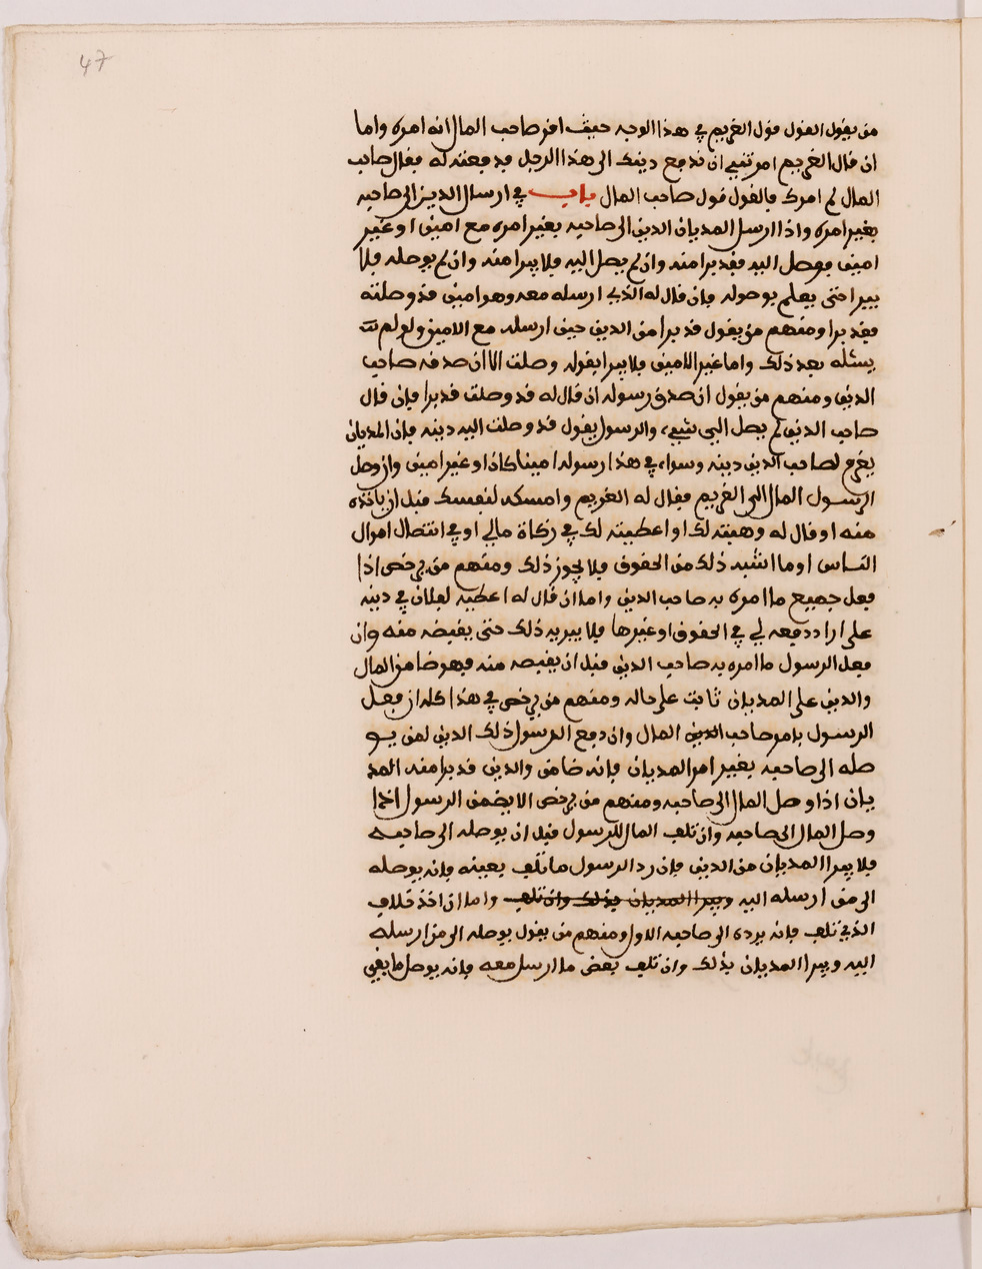 47
من يقول القول قول الغريم في هذا الوجه حيث اقر صاحب المال انه امره واما
ان قال الغريم امرتني ان ندفع دينك الى هذا الرجل قد دفعته له فقال صاحب
المال لم امرك فالقول قول صاحب المال باب في ارسال الدين الى صاحبه
بغير امره واذا ارسل المديان الدين الى صاحبه بغير امره مع امين او غير
امين فوصل اليه فقد برا منه وان لم يصل اليه فلا يبرا منه وان لم يوصله فلا
يبرا حتى يعلم بوصوله فان قال له الذي ارسله معه وهو امين قد وصلته
فقد برا ومنهم من يقول قد برا من الدين حين ارسله مع الامين ولو لم
يسئله بعد ذلك واما غير الامين فلا يبرا بقوله وصلت الا ان صدقه صاحب
الدين ومنهم من يقول ان صدق رسوله ان قال له قد وصلت قد برا فان قال
صاحب الدين لم يصل الي شيء والرسول يقول قد وصلت اليه دينه فان المديان
يغرم لصاحب الدين دينه وسواء في هذا رسوله امينا كان او غير امين وان وصل
الرسول المال الى الغريم فقال له الغريم وامسكه لنفسك قبل ان ياخذه
منه او قال له وهبته لك او اعطيته لك في زكاة مالي او في انتصال اموال
الناس او ما اشبه ذلك من الحقوق فلا يجوز ذلك ومنهم من يرخص اذا
فعل جميع ما امره به صاحب الدين واما ان قال له اعطيه لفلان في دينه
على او ادفعه لي في الحقوق او غيرها فلا يبريه ذلك حتى يقبضه منه وان
فعل الرسول ما امره به صاحب الدين قبل ان يقبضه منه فهو ضامن المال
والدين على المديان ثابت على حاله ومنهم من يرخص في هذا كله ان فعل
الرسول بامر صاحب الدين المال وان دفع الرسول ذلك الدين لمن يو
صله الى صاحبه بغير امر المديان فانه ضامن والدين قد برا منه المد
يان اذا وصل المال الى صاحبه ومنهم من يرخص الا يضمن الرسول اذا
وصل المال الى صاحبه وان تلف المال للرسول قبل ان يوصله الى صاحبه
فلا يبرا المديان من الدين فان رد الرسول ما تلف بعينه فانه يوصله
الى من ارسله اليه ويبرا المديان بذلك وان تلف واما ان اخذ خلاف
الذي تلف فانه يرده الى صاحبه الاول ومنهم من يقول يوصله الى من ارسله
اليه ويبرا المديان بذلك وان تلف بعض ما ارسل معه فانه يوصل ما بقي